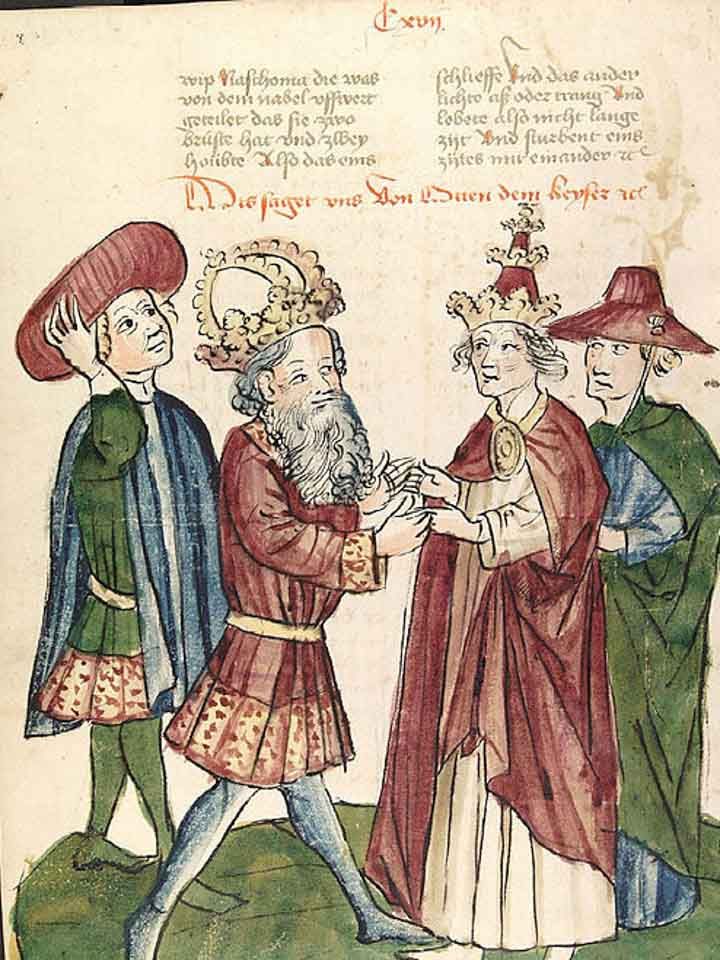 Cxvij.
wip Naschoma die was
von dem nabel vffwert
geteilet das sie zwo
brüste hat vnd zwey
houbte Also das eins
schlieffe Vnd das ander
lichte aß oder trang Vnd
lobete also nicht lange
zijt Vnd sturbent eins
zijtes mit einander ꝛc
Dis saget vns Von Otten dem keyser ꝛc